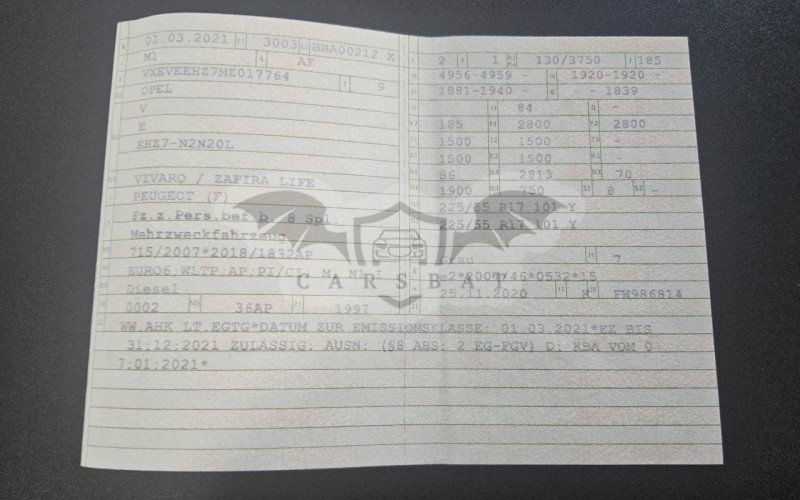 01.03.2021 3003 BBA00212 X
M1 AF
VXEVEEHZ7MZ017764 9
OPEL
V
E
EHZ7-N2N20L
VIVARO / ZAFIRA LIFE
PEUGEOT (F)
Fz.z.Pers.bef.b. 8 Spl.
Mehrzweckfahrzeug
715/2007*2018/1832AP
EURO6;WLTP;AP;PI/CI; M, N1 I
Diesel
0002 36AP 1997
WW.AHK LT.EGTG*DATUM ZUR EMISSIONSKLASSE: 01.03.2021*EZ BIS
31.12.2021 ZULÄSSIG; AUSN: (§8 ABS: 2 EG-FGV) D: KBA VOM 0
7:01:2021*
2 1 130/3750 185
4956-4959 - 1920-1920 -
1881-1940 - - - 1839
84 -
185 2800 2800
1500 1500 -
1500 1500 -
86 2813 70
1900 750 8 -
225/55 R17 101 Y
225/55 R17 101 Y
7
e2*2007/46*0532*15
25.11.2020 K FW986814
CARSBAT